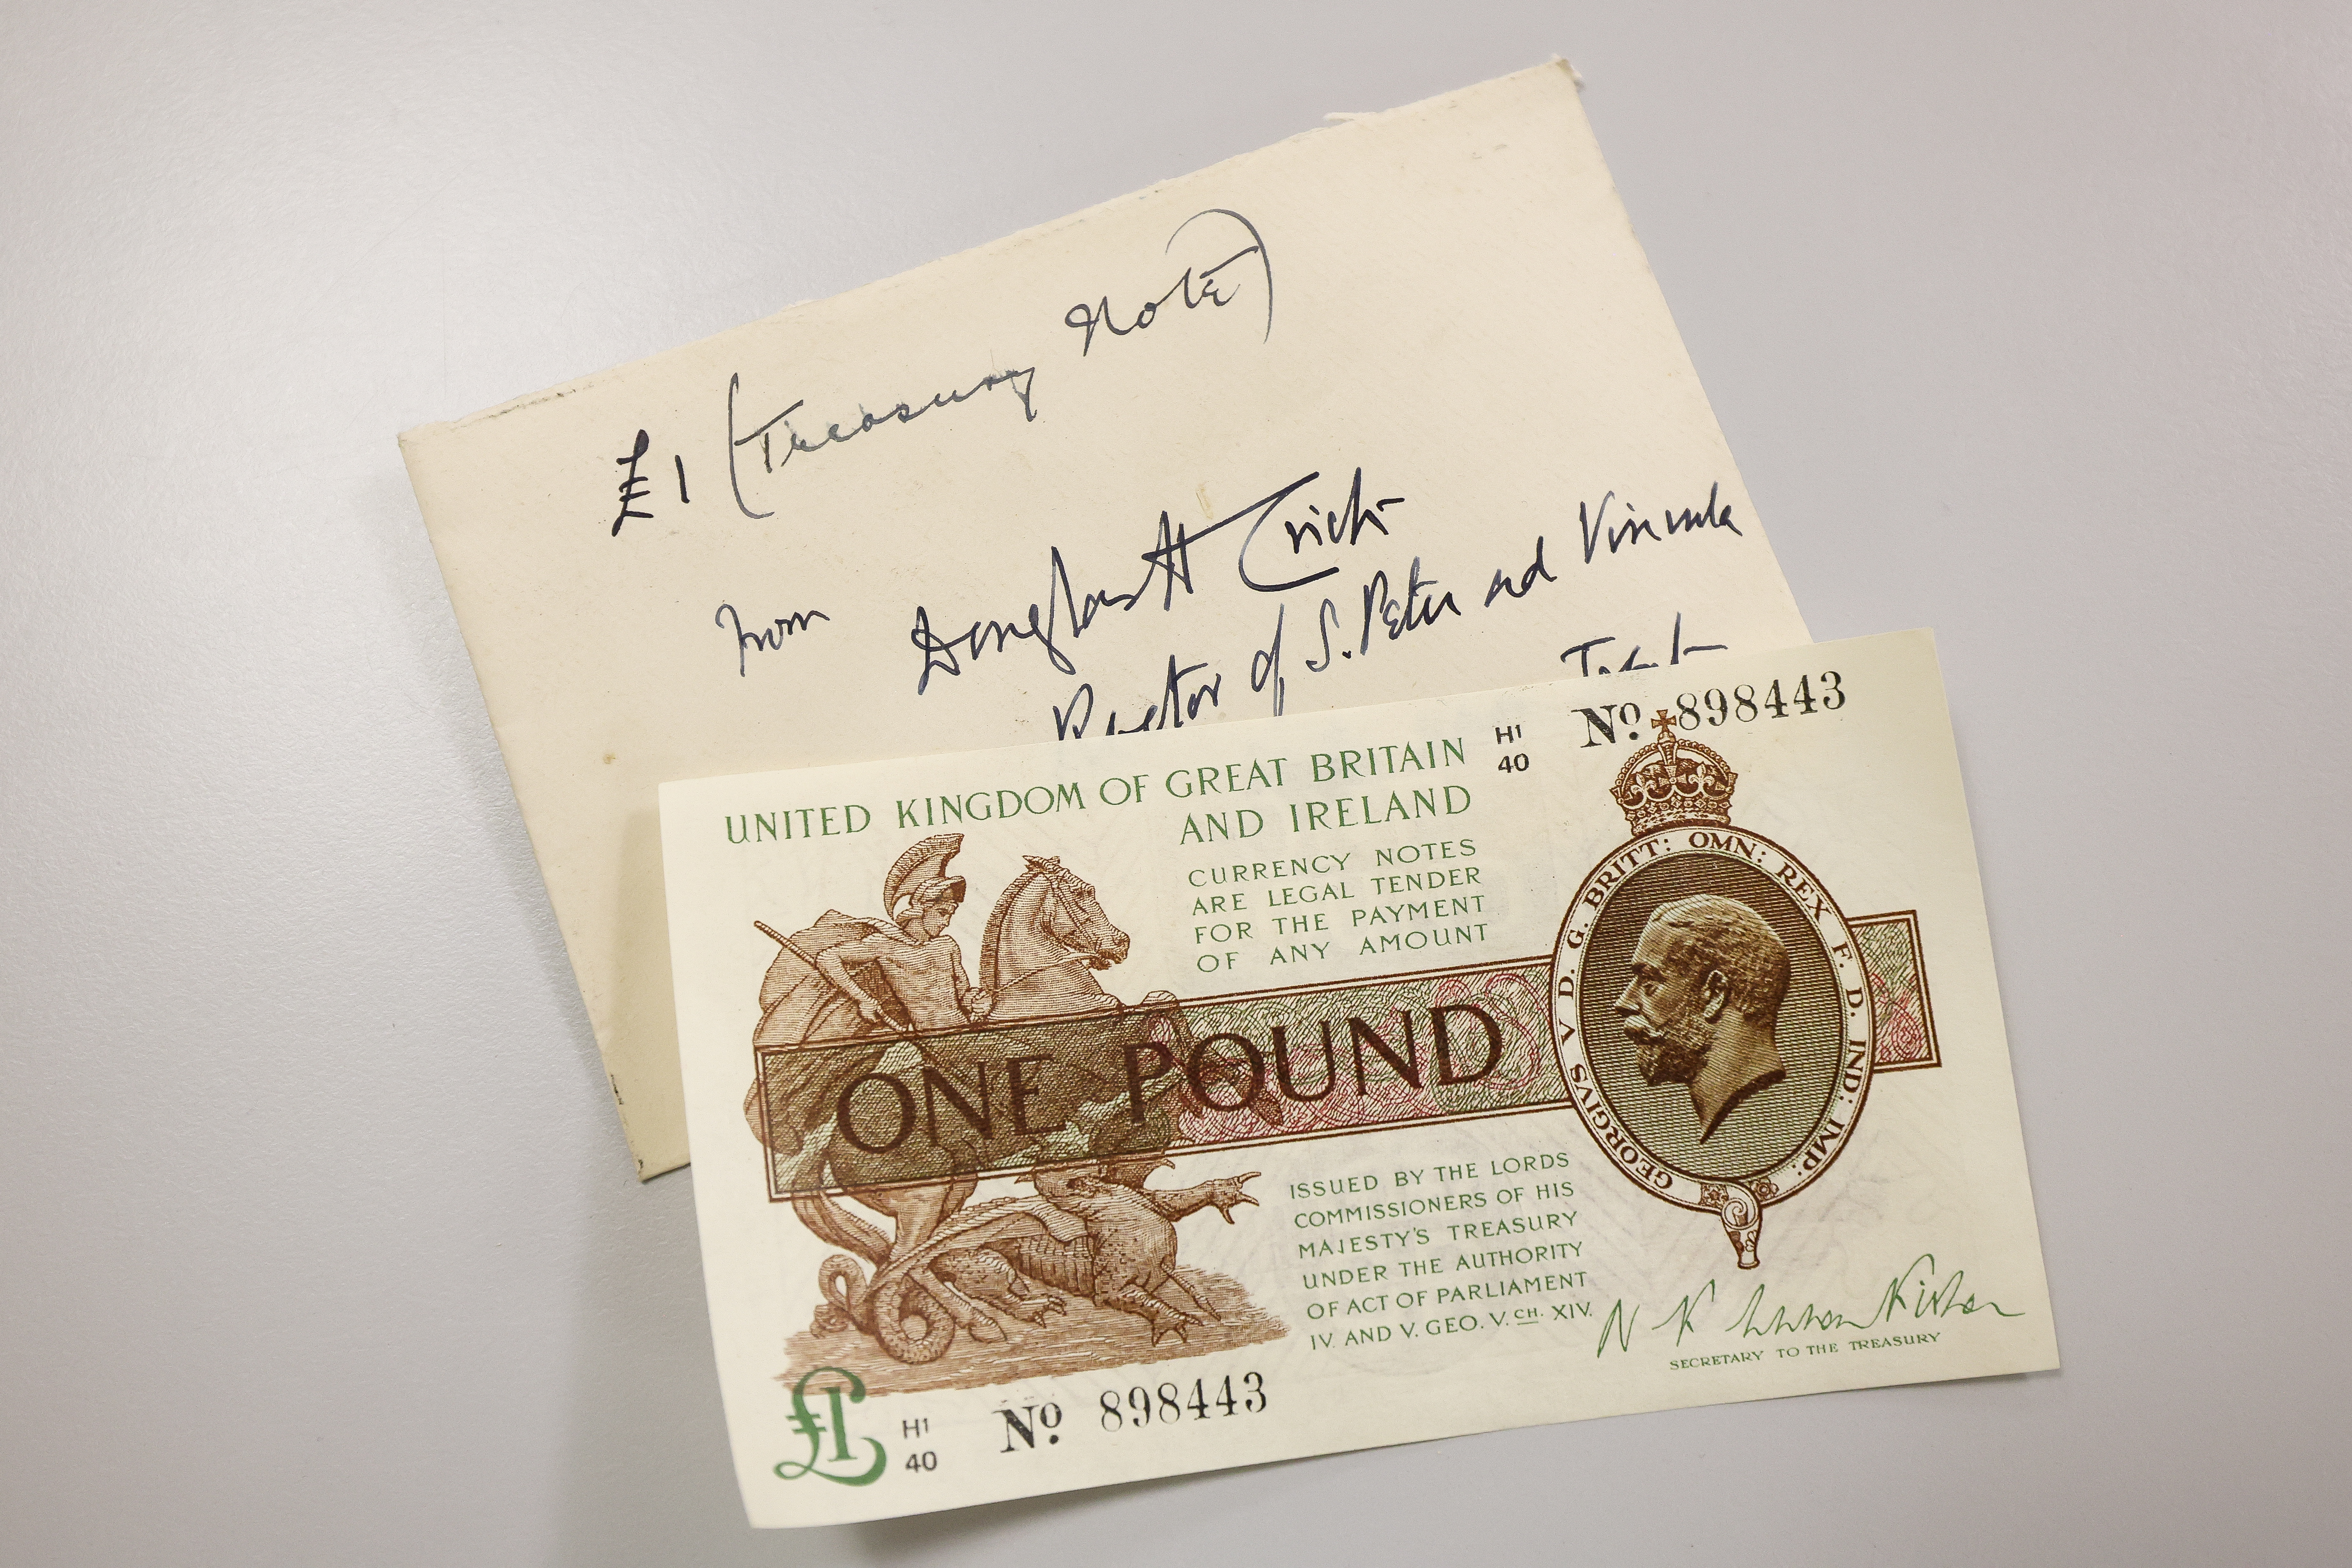 £1 (Treasury Note)
from Douglas H Crick
Rector of S. Peter ad Vincula
UNITED KINGDOM OF GREAT BRITAIN
AND IRELAND
H1
40
No. 898443
CURRENCY NOTES
ARE LEGAL TENDER
FOR THE PAYMENT
OF ANY AMOUNT
ONE POUND
GEORGIVS V D. G. BRITT: OMN: REX F. D. IND: IMP:
ISSUED BY THE LORDS
COMMISSIONERS OF HIS
MAJESTY'S TREASURY
UNDER THE AUTHORITY
OF ACT OF PARLIAMENT
IV. AND V. GEO. V. CH. XIV.
SECRETARY TO THE TREASURY
£1
H1
40
No. 898443